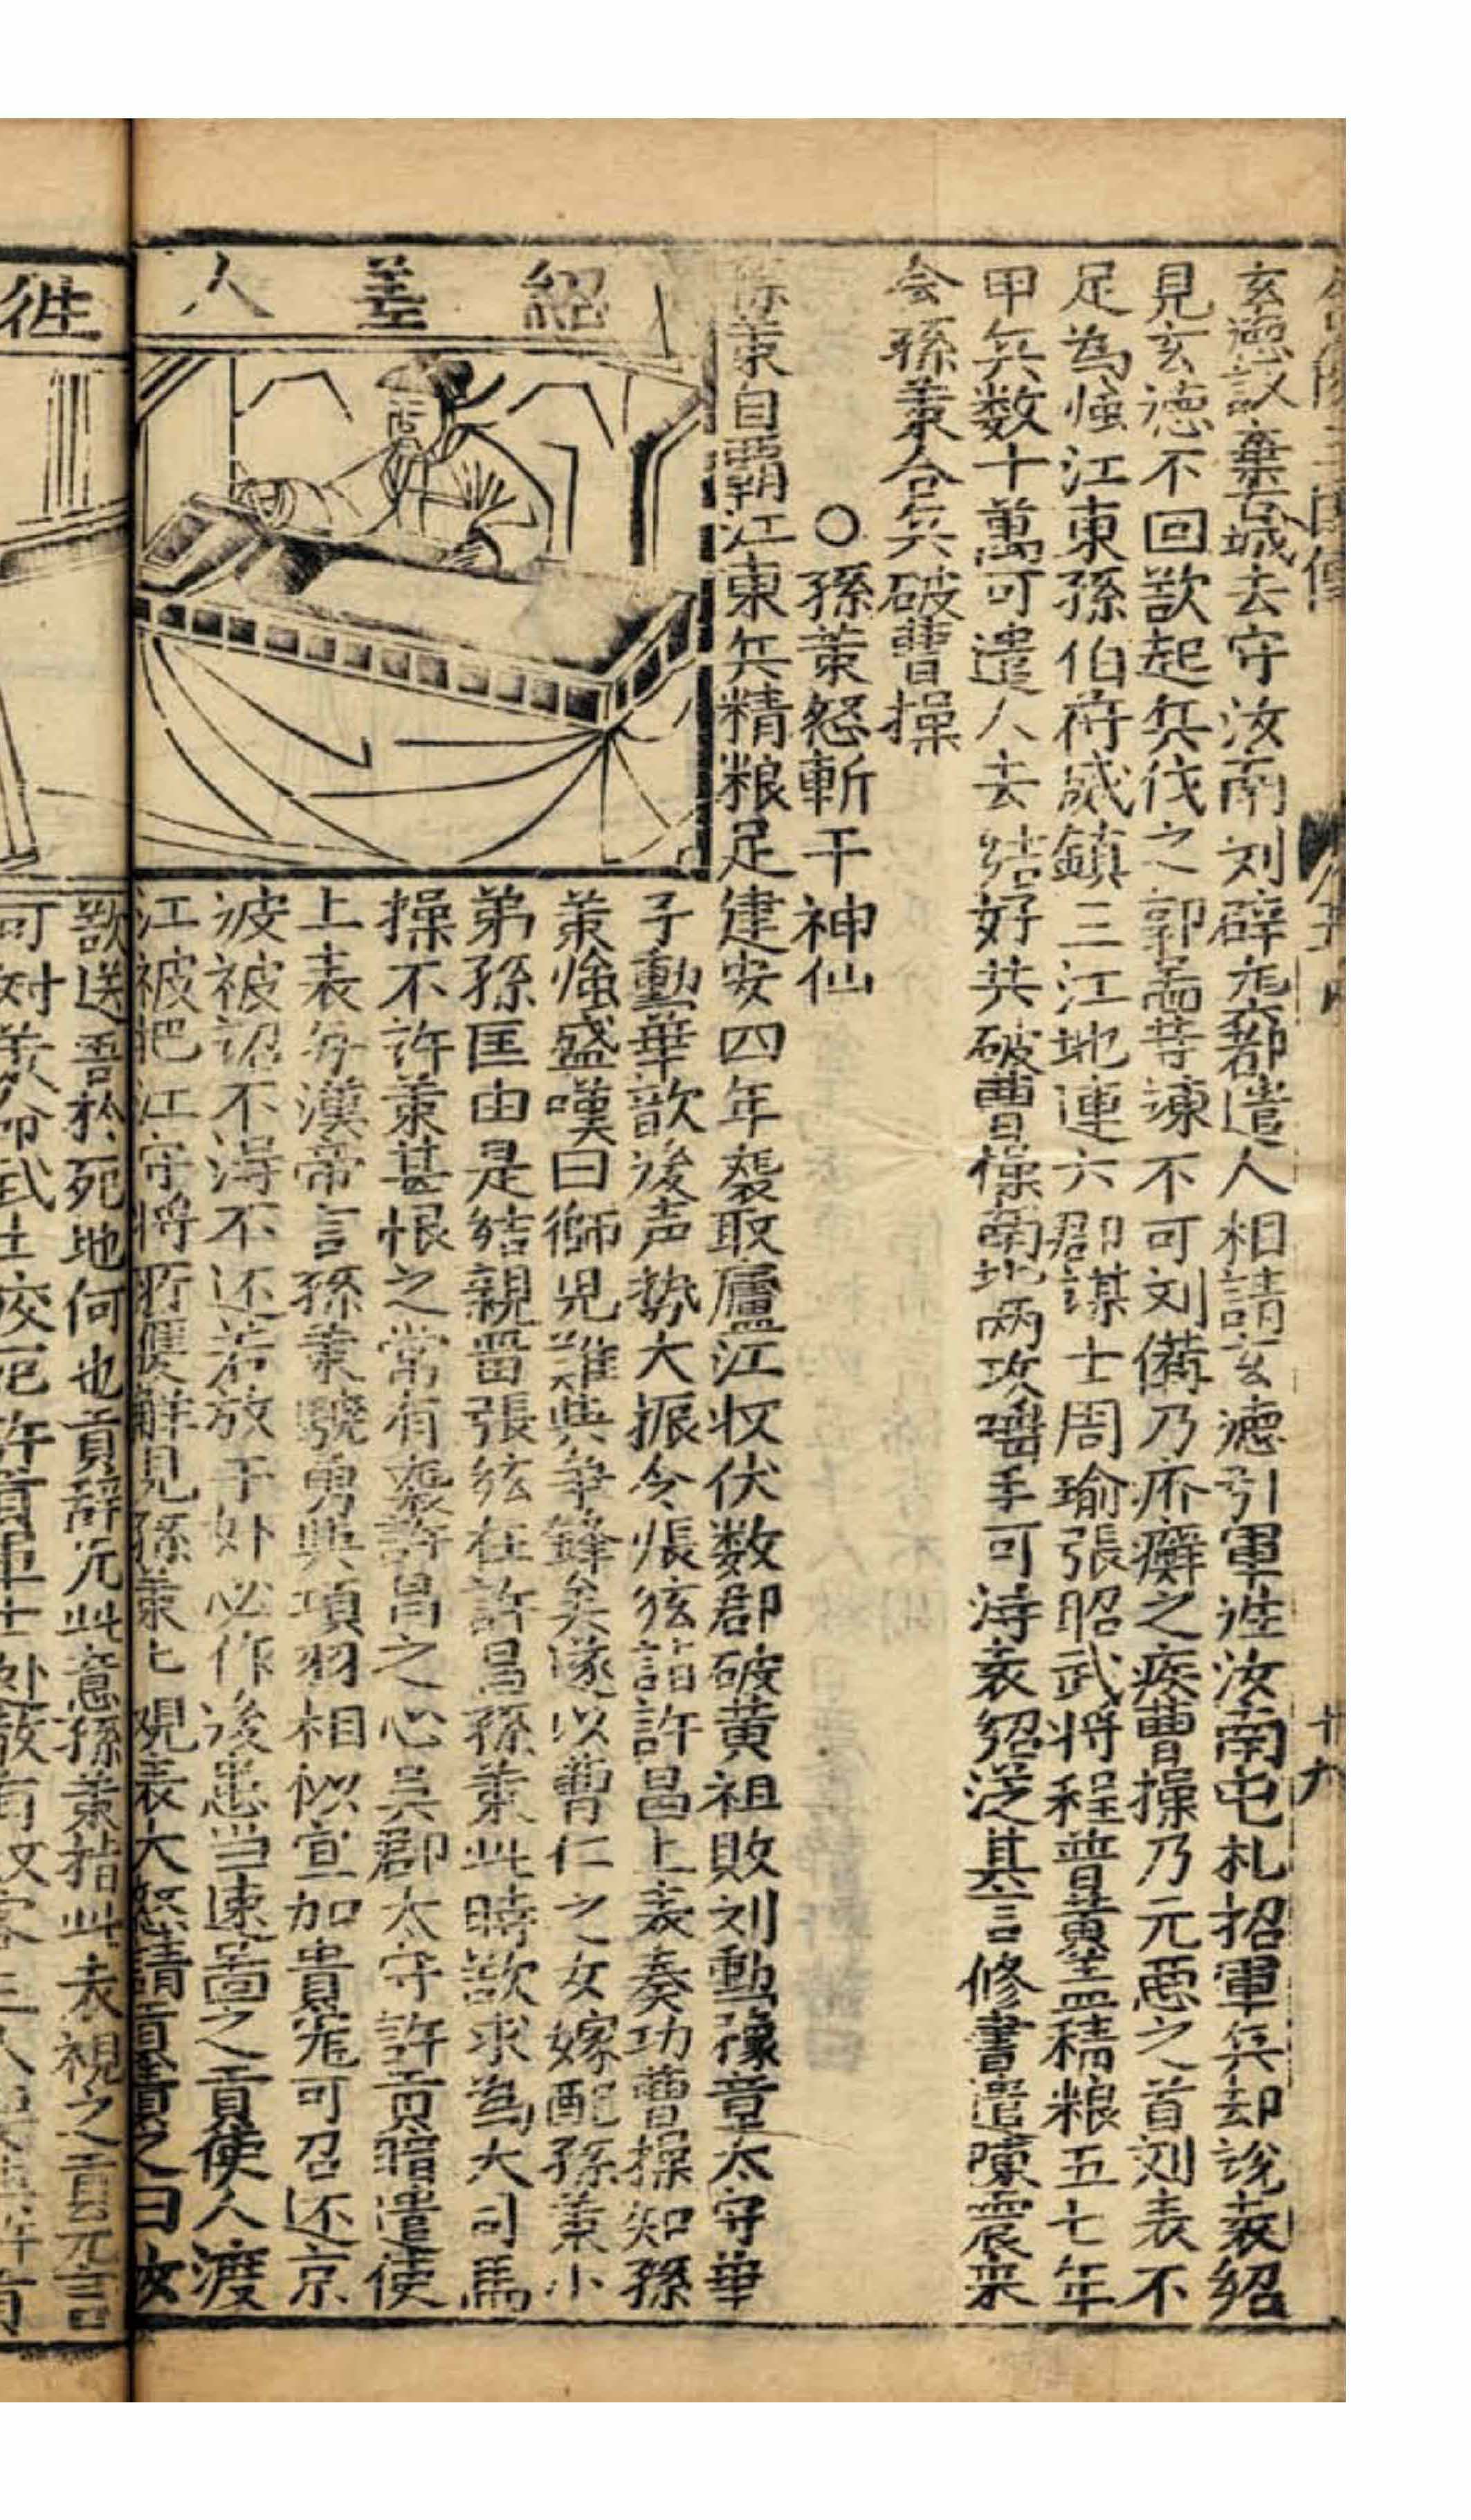 玄德議棄吾城去守汝南刘辟龙都遣人相請玄德引軍往汝南屯札招軍兵却説袁紹
見玄德不回欲起兵伐之郭啚等諫不可刘備乃疥癬之疾曹操乃元惡之首刘表不
足為強江東孫伯符威鎮三江地連六郡謀士周瑜張昭武将程普黄盖精粮五七年
甲兵数十萬可遣人去結好共破曹操南北兩攻唾手可得袁紹從其言修書遣陳震来
会孫策合兵破曹操
○孫策怒斬于神仙
孫策自霸江東兵精粮足建安四年襲取廬江収伏数郡破黄祖敗刘勳豫章太守華
紹差人
子勳華歆後声勢大振令張紘詣許昌上表奏功曹操知孫
策強盛嘆曰獅児難與争鋒矣遂以曹仁之女嫁配孫策小
弟孫匡由是結親畱張紘在許昌孫策此時欲求為大司馬
操不許策甚恨之常有襲許昌之心吴郡太守許貢暗遣使
上表与漢帝言孫策驍勇與項羽相似宜加貴寵可召还京
彼被詔不得不还若放于外必作後患当速啚之貢使人渡
江被把江守将所獲解見孫策匕覌表大怒請貢責之曰汝
欲送吾於死地何也貢辞无此意孫策指此表視之貢无言